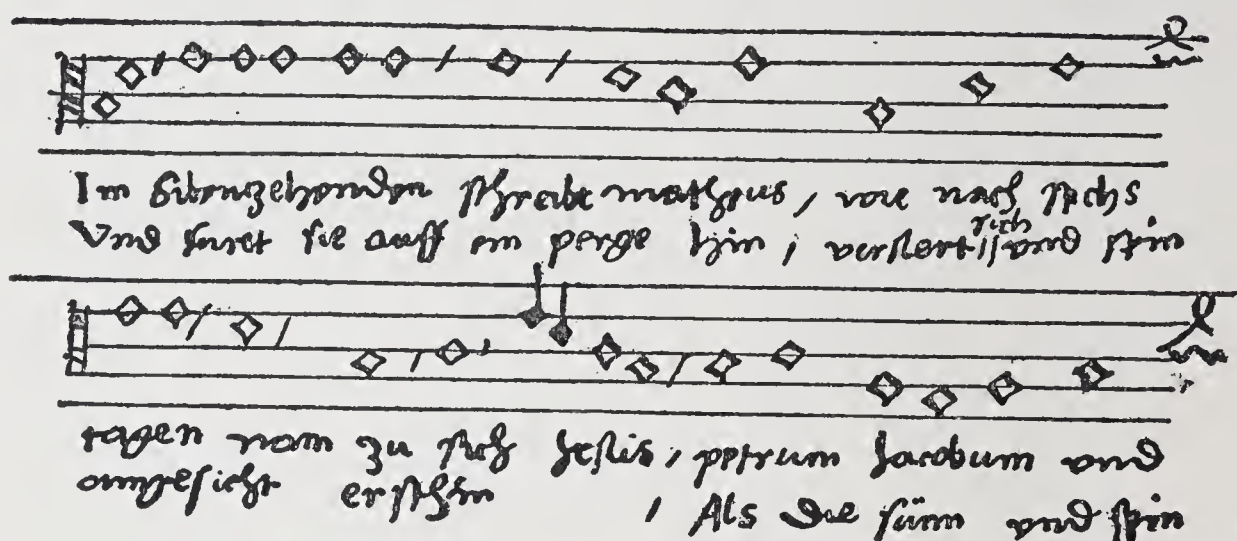 Im sibenzehenden schreibt matheus, wie nach sechs
Vnd furet sie auff ein perge hin, verklert sich vnd sein
tagen nam zu sich Jesus, petrum Jacobum vnd
angesicht erschin , Als die sunn vnd sein